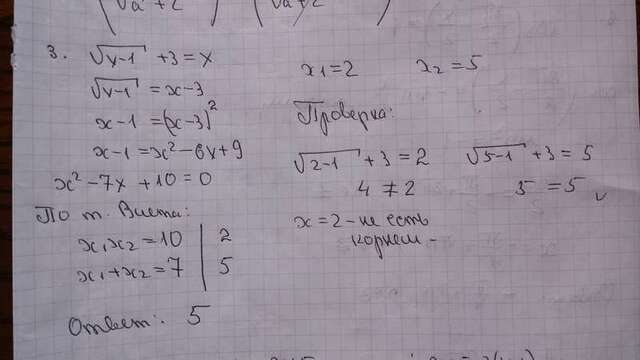 3. √x-1 +3=x
√x-1 = x-3
x-1 =(x-3)²
x-1 = x²-6x+9
x²-7x +10=0
По т. Виета:
x₁x₂=10 | 2
x₁+x₂=7 | 5
Ответ: 5
x₁=2 x₂=5
Проверка:
√2-1 +3=2 √5-1 +3=5
4≠2 5=5 ✓
x=2-не есть
корнем-